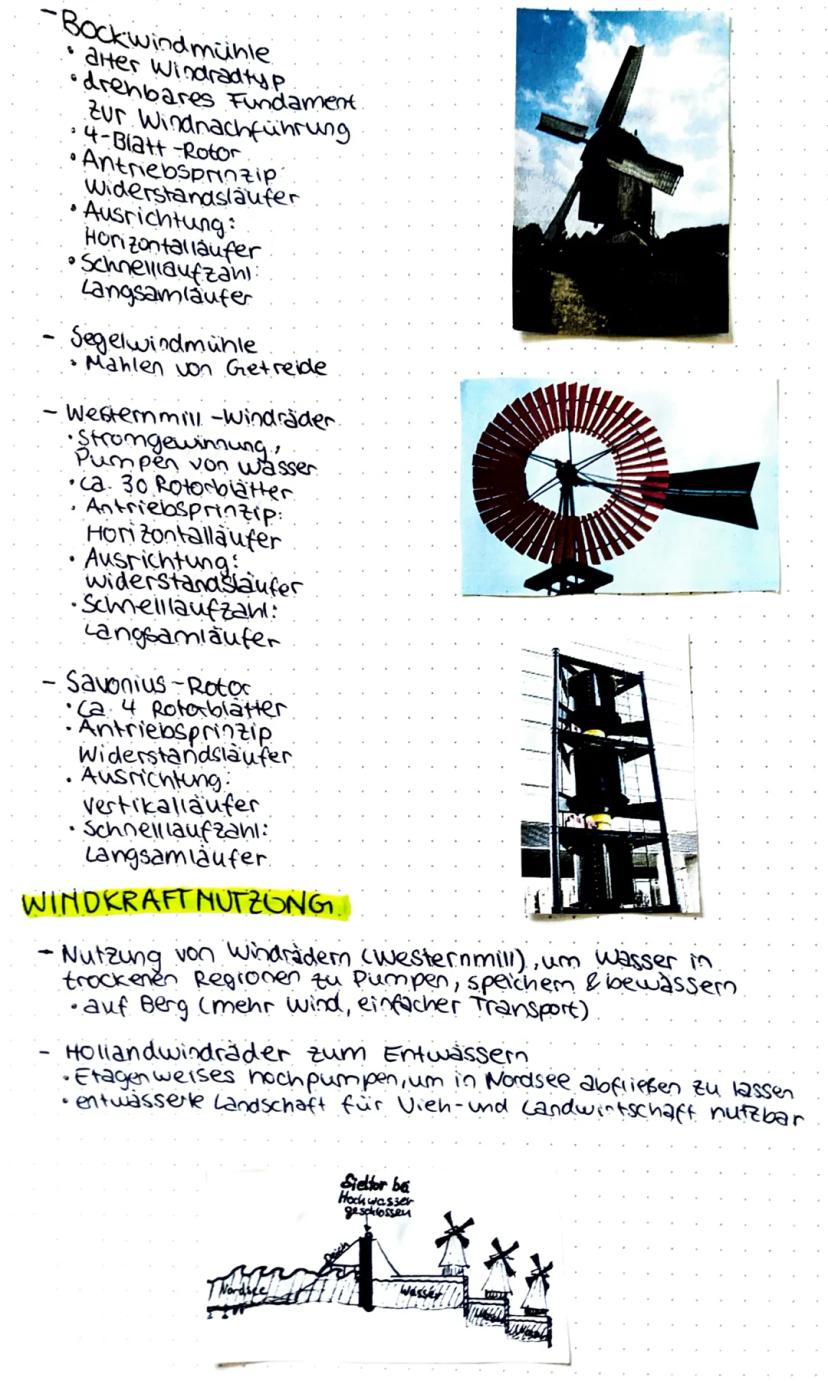 - Bockwindmühle
• alter Windradtyp
• drehbares Fundament
zur Windnachführung
• 4-Blatt-Rotor
• Antriebsprinzip:
Widerstandsläufer
• Ausrichtung:
Horizontalläufer
• Schnelllaufzahl:
Langsamläufer
- Segelwindmühle
• Mahlen von Getreide
- Westernmill-Windräder
• Stromgewinnung,
Pumpen von Wasser
• ca. 30 Rotorblätter
• Antriebsprinzip:
Horizontalläufer
• Ausrichtung:
Widerstandsläufer
• Schnelllaufzahl:
Langsamläufer
- Savonius-Rotor
• ca. 4 Rotorblätter
• Antriebsprinzip
Widerstandsläufer
• Ausrichtung:
Vertikalläufer
• Schnelllaufzahl:
Langsamläufer
WINDKRAFTNUTZUNG
- Nutzung von Windrädern (Westernmill), um Wasser in
trockenen Regionen zu Pumpen, speichern & bewässern
• auf Berg (mehr Wind, einfacher Transport)
- Hollandwindräder zum Entwässern
• Etagenweises hochpumpen, um in Nordsee abfließen zu lassen
• entwässerte Landschaft für Vieh- und Landwirtschaft nutzbar
Sieltor bei
Hochwasser
geschlossen
Deich
Nordsee
Wasser